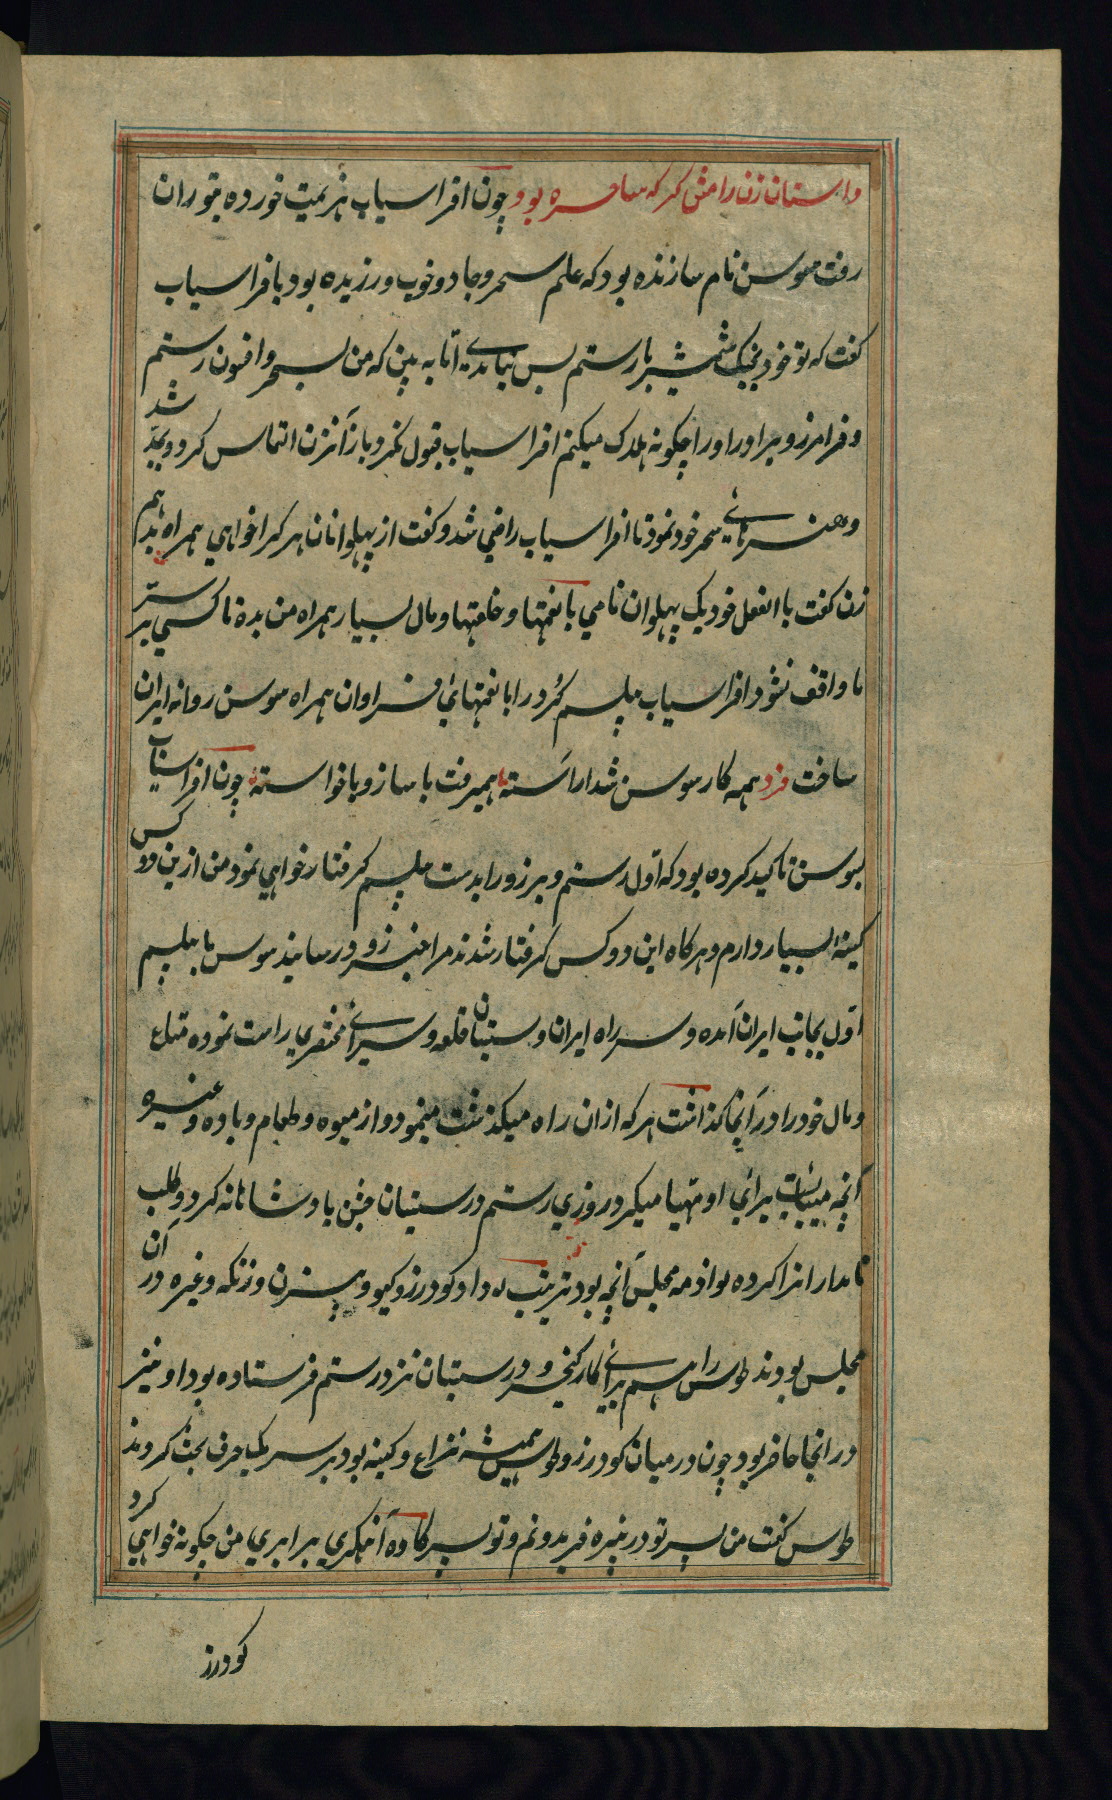 داستان زن رامشگر که ساحره بود چون افراسیاب هزیمت خورده بتوران
رفت سوسن نام سازنده بود که علم سحر و جادو خوب ورزیده بود بافراسیاب
کفت که تو خود بجنک شمشیر بارستم بس نیاندی اما به بین که من بسحر و افسون رستم
و فرامرز و برادر او را چکونه هلاک میکنم افراسیاب قبول نکرد باز آنزن التماس کرد و بجد شد
و هنرهای سحر خود نمود تا افراسیاب راضی شد و کفت از پهلوانان هر کرا خواهی همراه بدهم
زن کفت بالفعل خود یک پهلوان نامی با نعمتها و خلعتها و مال بسیار همراه من بده تا کسی بر سر
ما واقف نشود افراسیاب پیلسم کرد را با نعمتهای فراوان همراه سوسن روانه ایران
ساخت فرد همه کار سوسن شد آراسته همیرفت با ساز و با خواسته چون افراسیاب
بسوسن تاکید کرده بود که اول رستم و برزو را بدست پیلسم کرفتار خواهی نمود من ازین دو کس
کینه بسیار دارم و هرکاه این دو کس کرفتار شدند مرا خبر زود رسانید سوسن با پیلسم
اول بجانب ایران آمده و سر راه ایران و سیستان قلعه و سرای مختصری راست نموده متاع
و مال خود را در آنجا کذاشت هر که ازان راه میکذشت مینمود و از میوه و طعام و باده و غیره
آنچه میبایست برای او مهیا میکرد روزی رستم در سیستان جشن بادشاهانه کرد و طلب
نامدارانرا کرده لوازمه مجلس آنچه بود ترتیب داد و کودرز و کیو و بیژن و زنکه و غیره در آن
مجلس بودند طوس را هم برای کار کیخسرو در سیستان نزد رستم فرستاده بود او نیز
در انجا حاضر بود چون درمیان کودرز و طوس همیشه نزاع و کینه بود بر سر یک حرف بحث کردند
طوس کفت من پسر نوذر نبیره فریدونم و تو پسر کاوه آهنکری برابری من چکونه خواهی کرد
کودرز